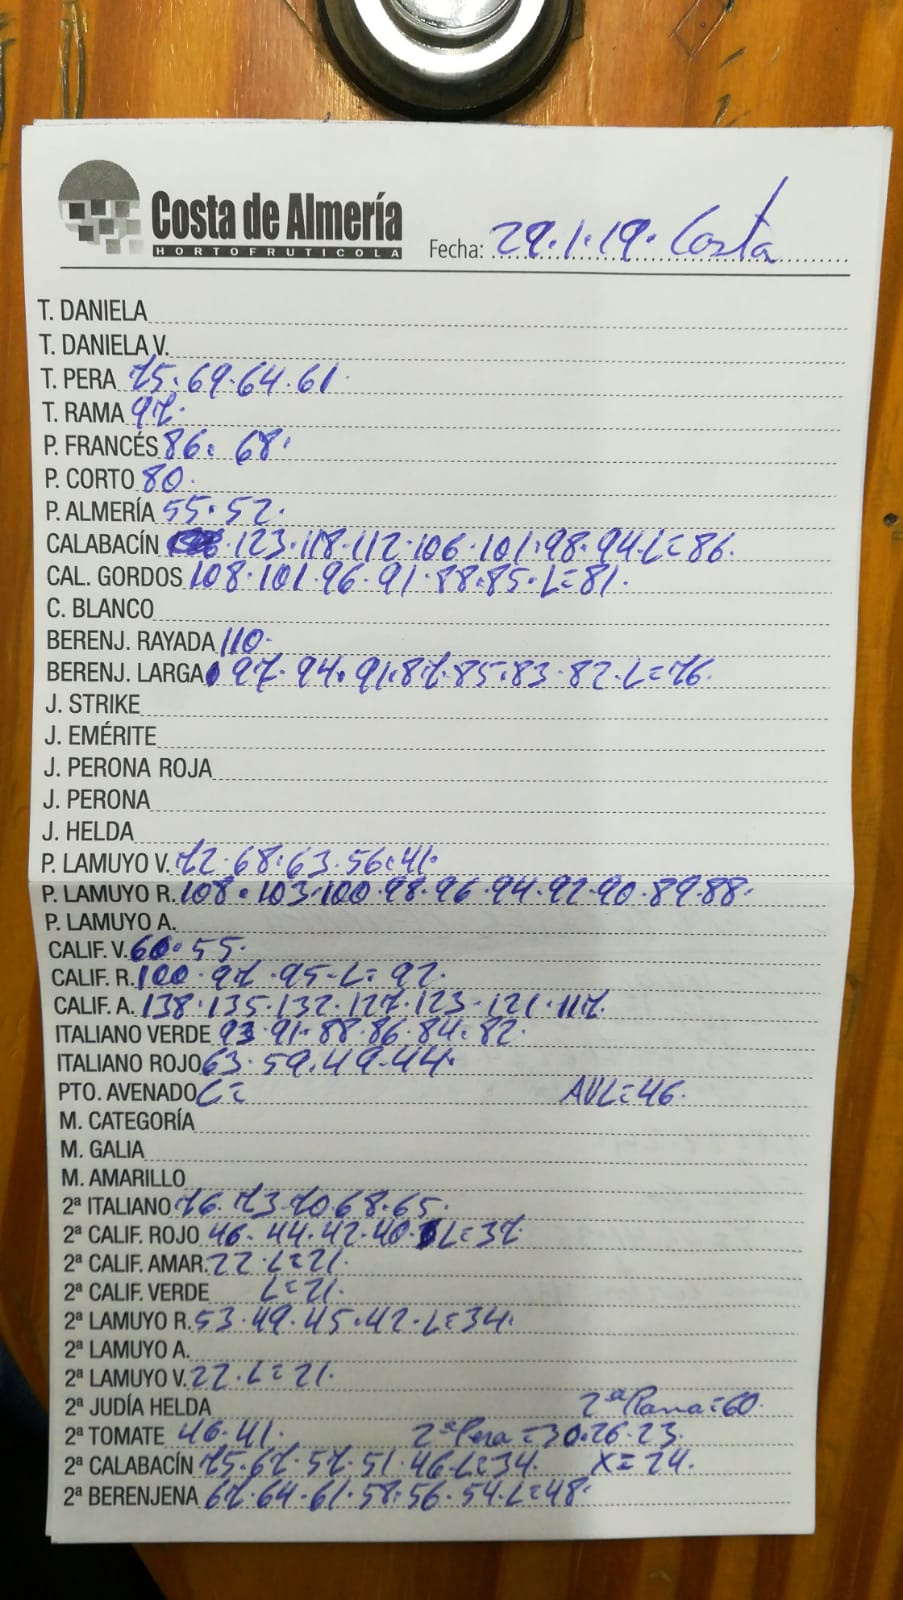 Costa de Almería
HORTOFRUTICOLA
Fecha: 29.1.19. Costa
T. DANIELA
T. DANIELA V.
T. PERA 75.69.64.61.
T. RAMA 97.
P. FRANCÉS 86. 68.
P. CORTO 80.
P. ALMERÍA 55.52.
CALABACÍN .123.118.112.106.101.98.94.L=86.
CAL. GORDOS 108.101.96.91.88.85.L=81.
C. BLANCO
BERENJ. RAYADA 110.
BERENJ. LARGA 97.94.91.87.85.83.82.L=76.
J. STRIKE
J. EMÉRITE
J. PERONA ROJA
J. PERONA
J. HELDA
P. LAMUYO V. 72.68.63.56.41.
P. LAMUYO R. 108.103.100.98.96.94.92.90.89.88.
P. LAMUYO A.
CALIF. V. 60.55.
CALIF. R. 100.97.95.L=92.
CALIF. A. 138.135.132.127.123.121.117.
ITALIANO VERDE 93.91.88.86.84.82.
ITALIANO ROJO 63.59.49.44.
PTO. AVENADO L= AVL=46.
M. CATEGORÍA
M. GALIA
M. AMARILLO
2ª ITALIANO 76.73.70.68.65.
2ª CALIF. ROJO 46.44.42.40. L=37.
2ª CALIF. AMAR. 22.L=21.
2ª CALIF. VERDE L=21.
2ª LAMUYO R. 53.49.45.42.L=34.
2ª LAMUYO A.
2ª LAMUYO V. 22.L=21.
2ª JUDÍA HELDA 2ª Rama=60.
2ª TOMATE 46.41. 2ª Pera=30.26.23.
2ª CALABACÍN 75.67.57.51.46.L=34. X=24.
2ª BERENJENA 67.64.61.58.56.54.L=48.